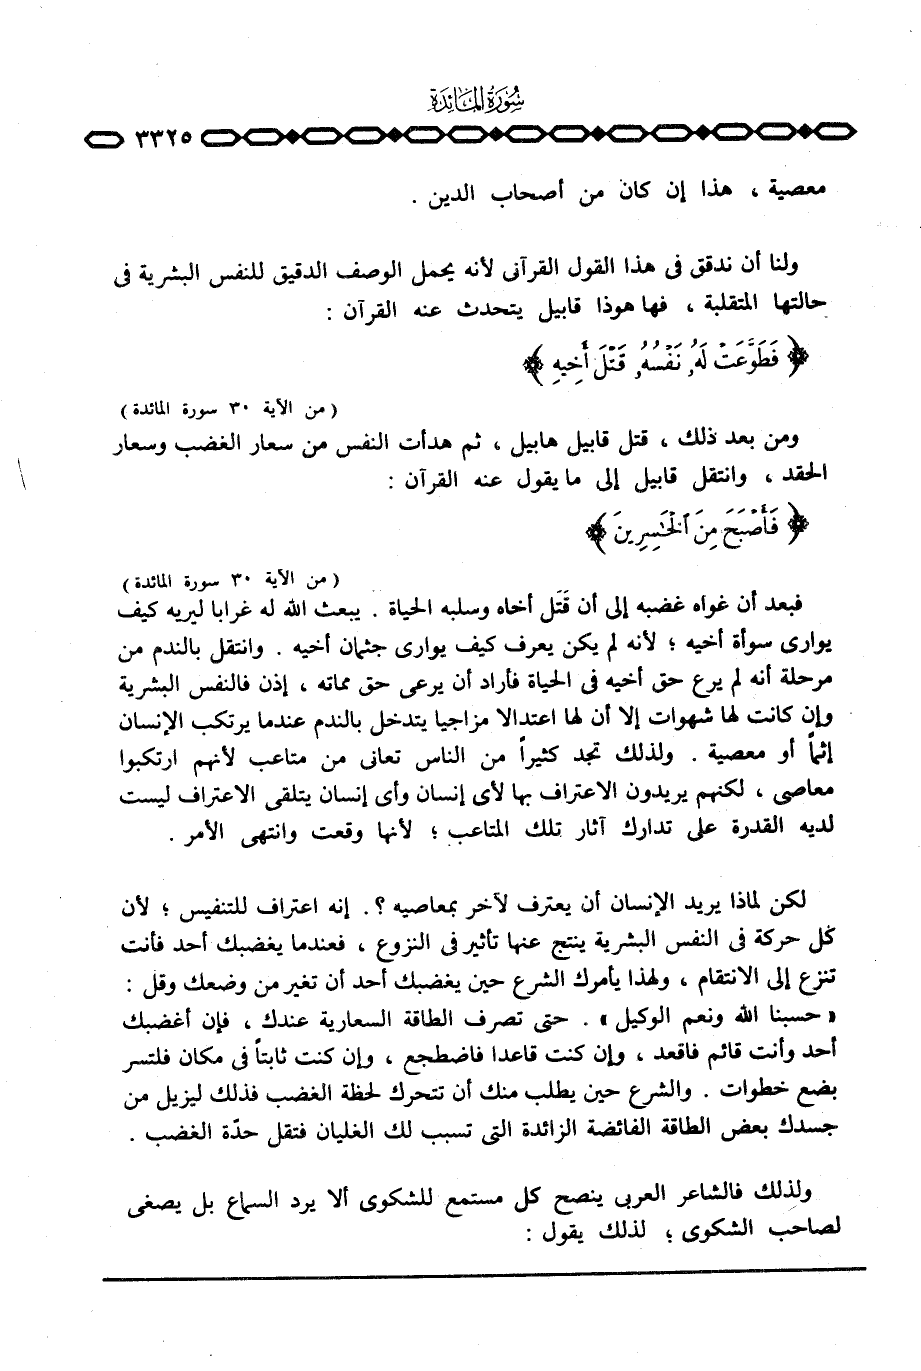 سُورَةُ المَائِدَة
٣٣٢٥
معصية ، هذا إن كان من أصحاب الدين .
ولنا أن ندقق فى هذا القول القرآنى لأنه يحمل الوصف الدقيق للنفس البشرية فى
حالتها المتقلبة ، فها هوذا قابيل يتحدث عنه القرآن :
﴿ فَطَوَّعَتْ لَهُۥ نَفْسُهُۥ قَتْلَ أَخِيهِ ﴾
( من الآية ٣٠ سورة المائدة )
ومن بعد ذلك ، قتل قابيل هابيل ، ثم هدأت النفس من سعار الغضب وسعار
الحقد ، وانتقل قابيل إلى ما يقول عنه القرآن :
﴿ فَأَصْبَحَ مِنَ ٱلْخَٰسِرِينَ ﴾
( من الآية ٣٠ سورة المائدة )
فبعد أن غواه غضبه إلى أن قَتَل أخاه وسلبه الحياة . يبعث الله له غرابا ليريه كيف
يوارى سوأة أخيه ؛ لأنه لم يكن يعرف كيف يوارى جثمان أخيه . وانتقل بالندم من
مرحلة أنه لم يرع حق أخيه فى الحياة فأراد أن يرعى حق مماته ، إذن فالنفس البشرية
وإن كانت لها شهوات إلا أن لها اعتدالا مزاجيا يتدخل بالندم عندما يرتكب الإنسان
إثماً أو معصية . ولذلك تجد كثيراً من الناس تعانى من متاعب لأنهم ارتكبوا
معاصى ، لكنهم يريدون الاعتراف بها لأى إنسان وأى إنسان يتلقى الاعتراف ليست
لديه القدرة على تدارك آثار تلك المتاعب ؛ لأنها وقعت وانتهى الأمر .
لكن لماذا يريد الإنسان أن يعترف لآخر بمعاصيه ؟. إنه اعتراف للتنفيس ؛ لأن
كُل حركة فى النفس البشرية ينتج عنها تأثير فى النزوع ، فعندما يغضبك أحد فأنت
تنزع إلى الانتقام ، ولهذا يأمرك الشرع حين يغضبك أحد أن تغير من وضعك وقل :
« حسبنا الله ونعم الوكيل » . حتى تصرف الطاقة السعارية عندك ، فإن أغضبك
أحد وأنت قائم فاقعد ، وإن كنت قاعدا فاضطجع ، وإن كنت ثابتاً فى مكان فلتسر
بضع خطوات . والشرع حين يطلب منك أن تتحرك لحظة الغضب فذلك ليزيل من
جسدك بعض الطاقة الفائضة الزائدة التى تسبب لك الغليان فتقل حدّة الغضب .
ولذلك فالشاعر العربى ينصح كل مستمع للشكوى ألا يرد السماع بل يصغى
لصاحب الشكوى ؛ لذلك يقول :